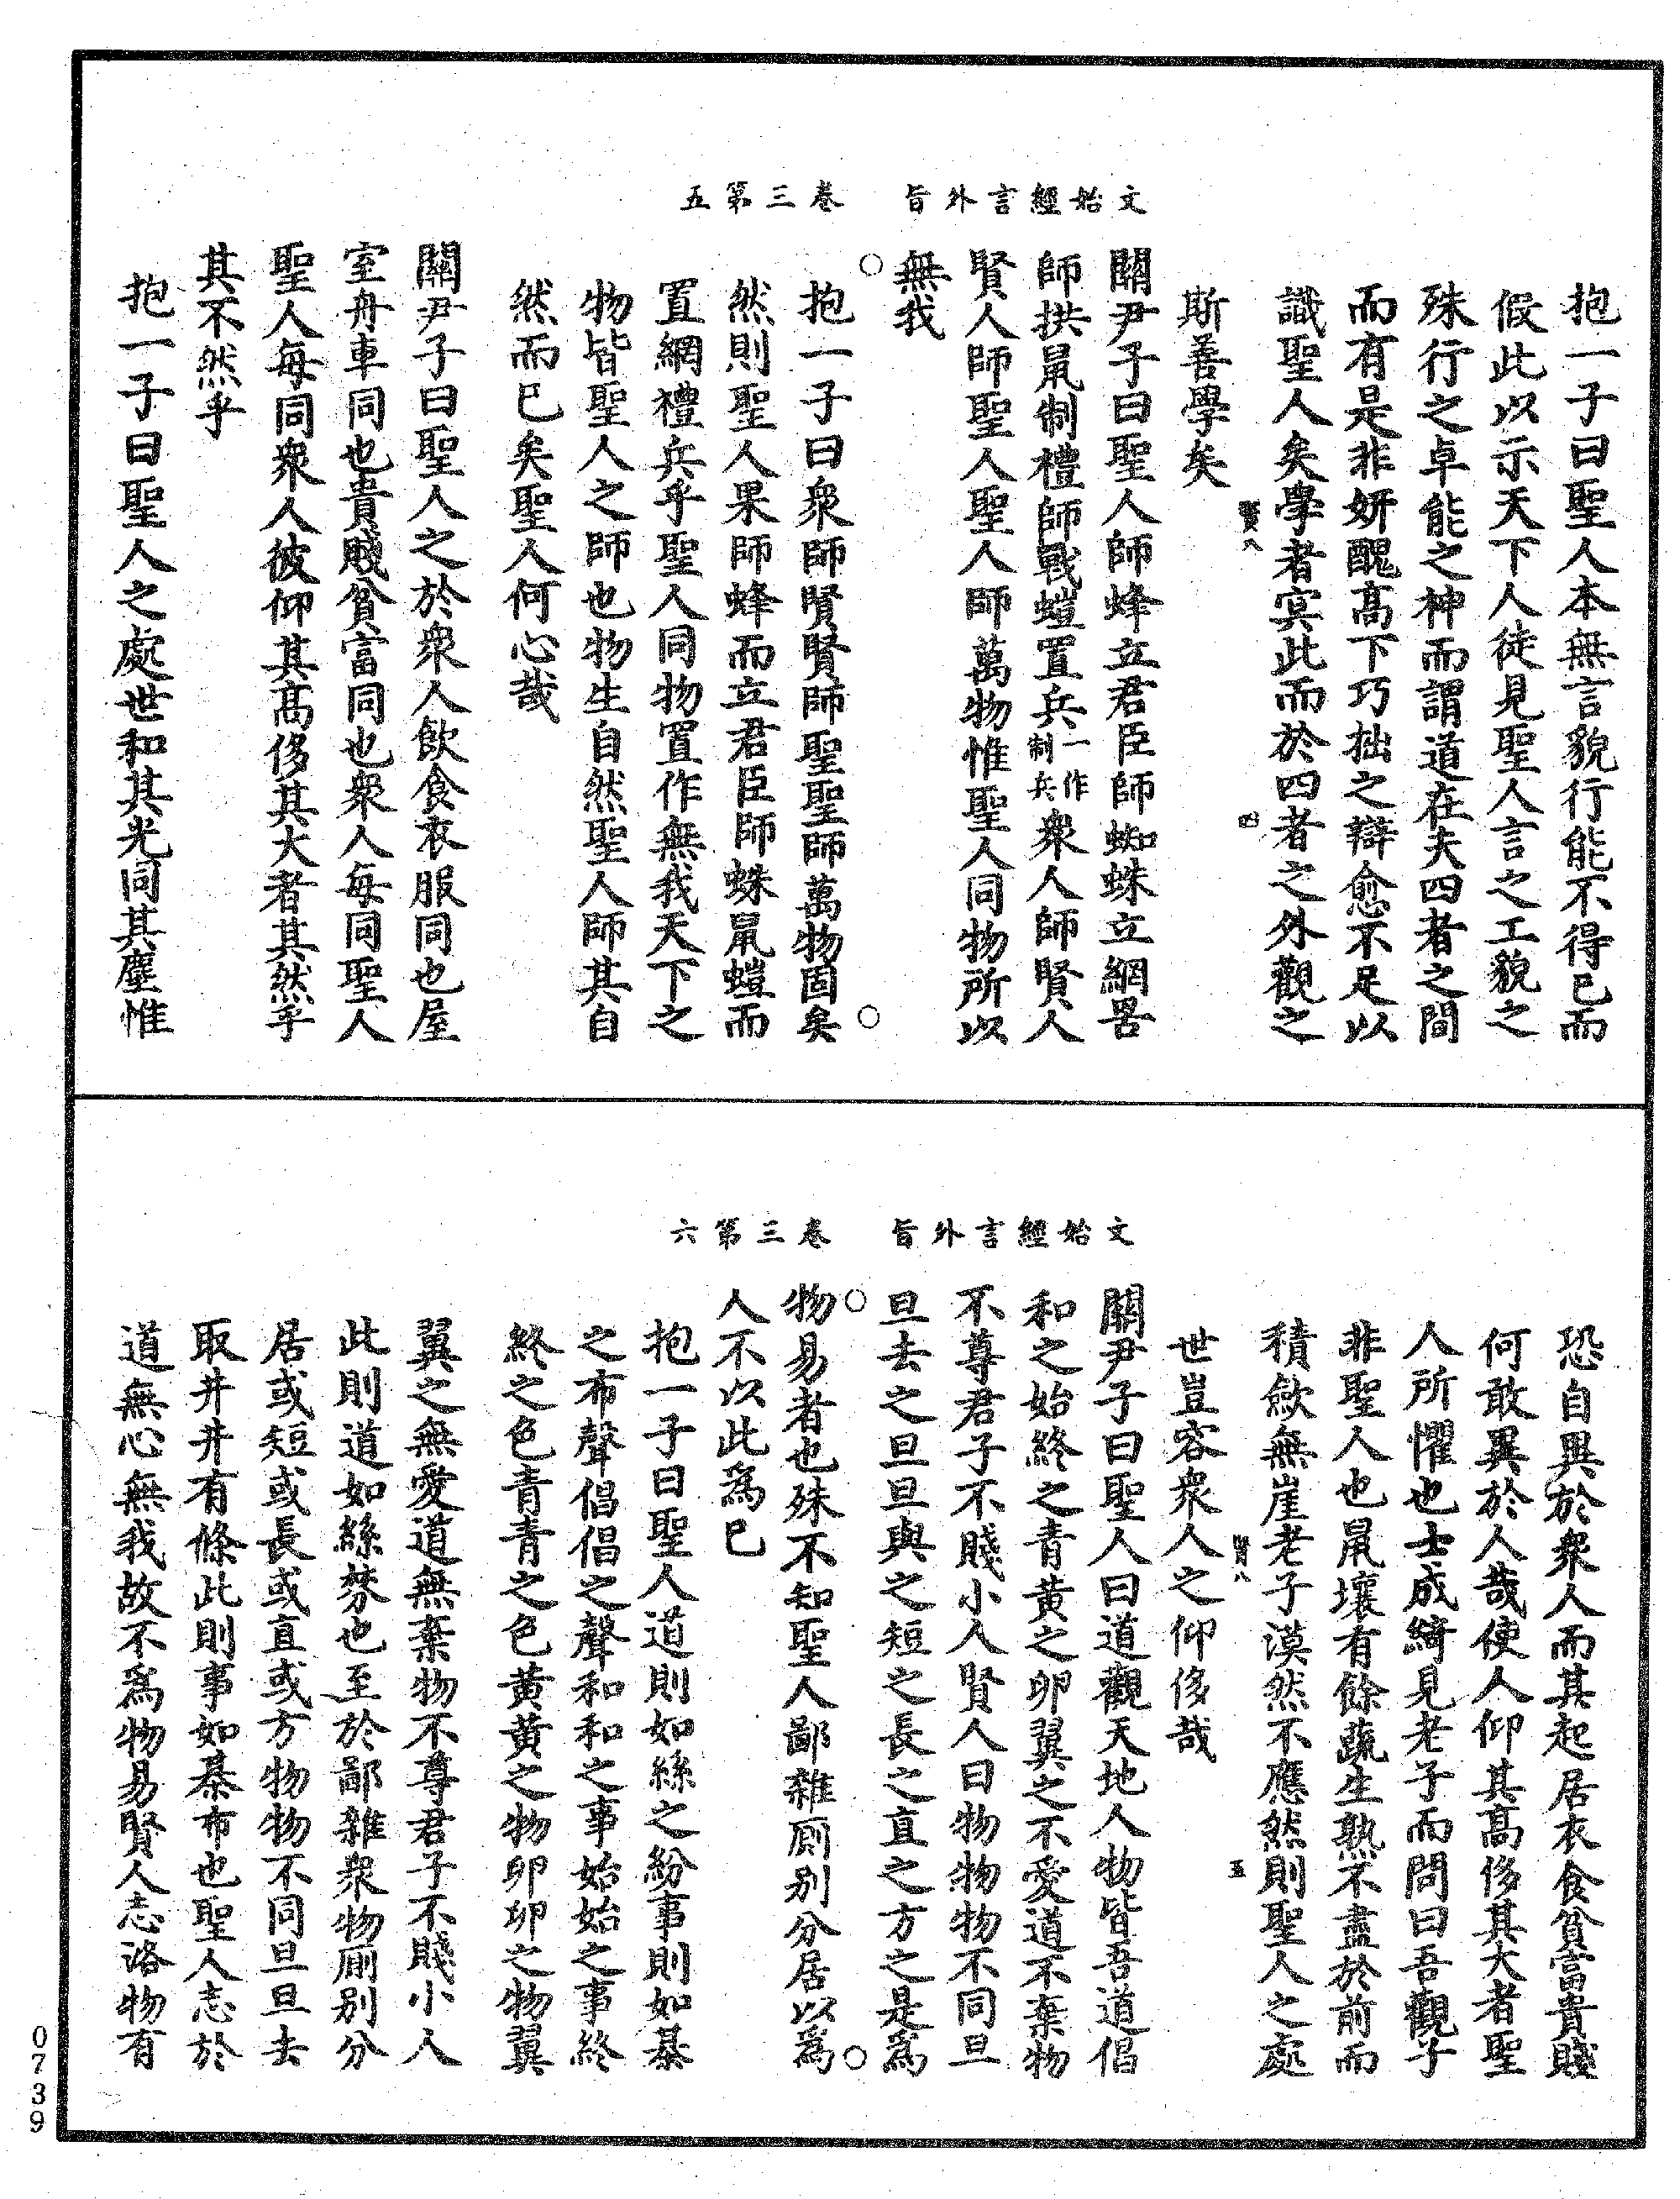 文始經言外旨　卷三第五
抱一子曰聖人本無言貌行能不得已而
假此以示天下人徒見聖人言之工貌之
殊行之卓能之神而謂道在夫四者之間
而有是非妍醜高下巧拙之辯愈不足以
識聖人矣學者寘此而於四者之外觀之
斯善學矣
賢八
四
關尹子曰聖人師蜂立君臣師蜘蛛立網罟
師拱鼠制禮師戰螘置兵一作制兵衆人師賢人
賢人師聖人聖人師萬物惟聖人同物所以
無我
○
○
抱一子曰衆師賢賢師聖聖師萬物固矣
然則聖人果師蜂而立君臣師蛛鼠螘而
置網禮兵乎聖人同物置作無我天下之
物皆聖人之師也物生自然聖人師其自
然而已矣聖人何心哉
關尹子曰聖人之於衆人飲食衣服同也屋
室舟車同也貴賤貧富同也衆人每同聖人
聖人每同衆人彼仰其高侈其大者其然乎
其不然乎
抱一子曰聖人之處世和其光同其塵惟
文始經言外旨　卷三第六
恐自異於衆人而其起居衣食貧富貴賤
何敢異於人哉使人仰其高侈其大者聖
人所懼也士成綺見老子而問曰吾觀子
非聖人也鼠壤有餘蔬生熟不盡於前而
積斂無崖老子漠然不應然則聖人之處
世豈容衆人之仰侈哉
賢八
五
關尹子曰聖人曰道觀天地人物皆吾道倡
和之始終之青黄之卵翼之不愛道不棄物
不尊君子不賤小人賢人曰物物物不同旦
旦去之旦旦與之短之長之直之方之是爲
物易者也殊不知聖人鄙雜厠别分居以爲
人不以此爲已
○
○
抱一子曰聖人道則如絲之紛事則如棊
之布聲倡倡之聲和和之事始始之事終
終之色青青之色黄黄之物卵卵之物翼
翼之無愛道無棄物不尊君子不賤小人
此則道如絲棼也至於鄙雜衆物厠别分
居或短或長或直或方物物不同旦旦去
取井井有條此則事如棊布也聖人志於
道無心無我故不爲物易賢人志洛物有
0739